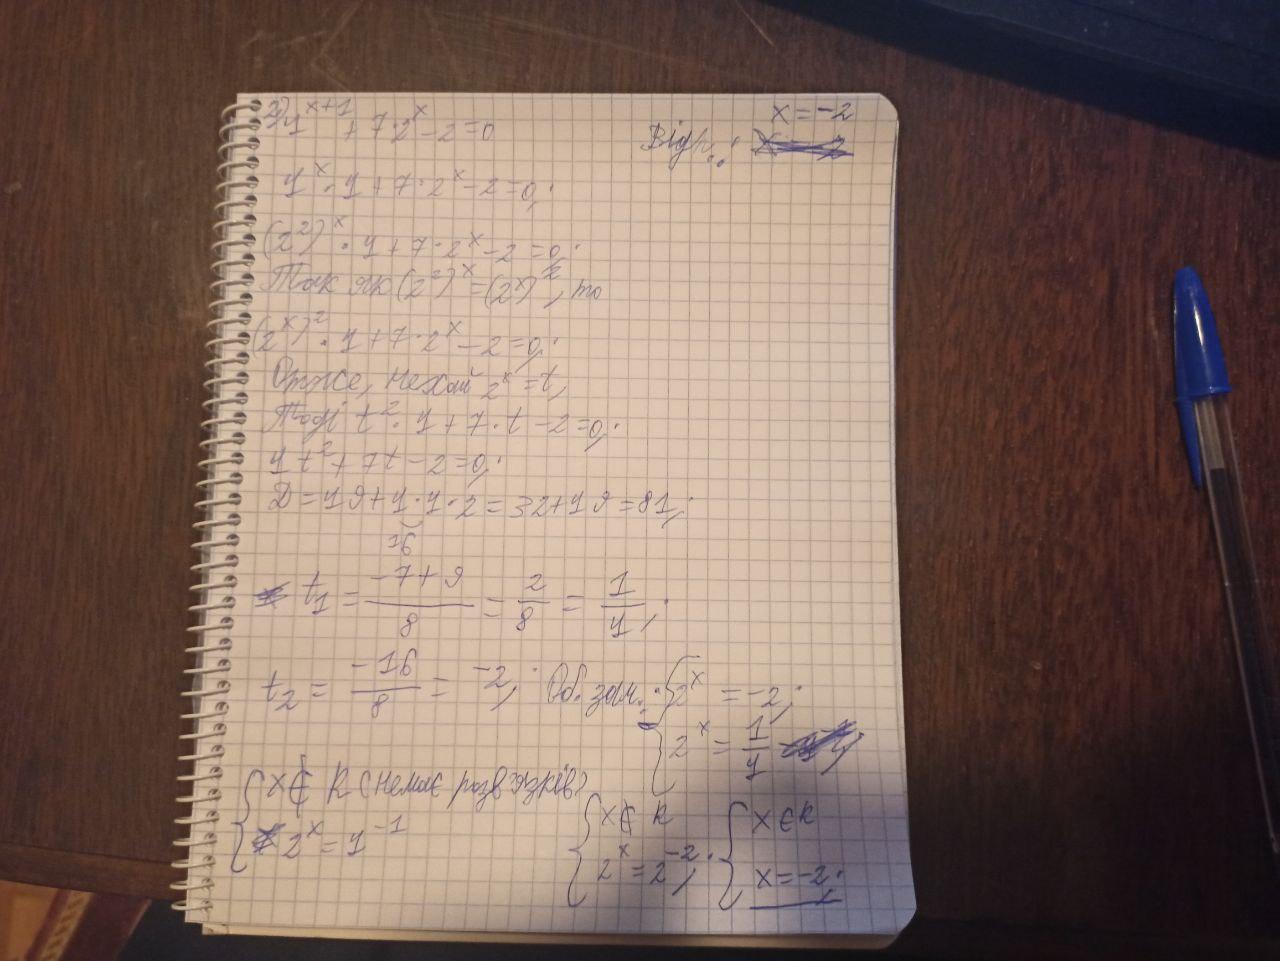 2) 4^{x+1} + 7·2^x - 2 = 0
x = -2
Відп.:
4^x · 4 + 7 · 2^x - 2 = 0;
(2^2)^x · 4 + 7 · 2^x - 2 = 0;
Так як (2^2)^x = (2^x)^2, то
(2^x)^2 · 4 + 7 · 2^x - 2 = 0;
Отже, нехай 2^x = t,
Тоді t^2 · 4 + 7 · t - 2 = 0;
4t^2 + 7t - 2 = 0;
D = 49 + 4 · 4 · 2 = 32 + 49 = 81;
16
t_1 = \frac{-7+9}{8} = \frac{2}{8} = \frac{1}{4};
t_2 = \frac{-16}{8} = -2; Об. зам.: { 2^x = -2;
2^x = \frac{1}{4}
{ x ∉ R (немає розв'язків)
2^x = 4^{-1}
{ x ∉ R
2^x = 2^{-2};
{ x ∈ R
x = -2;